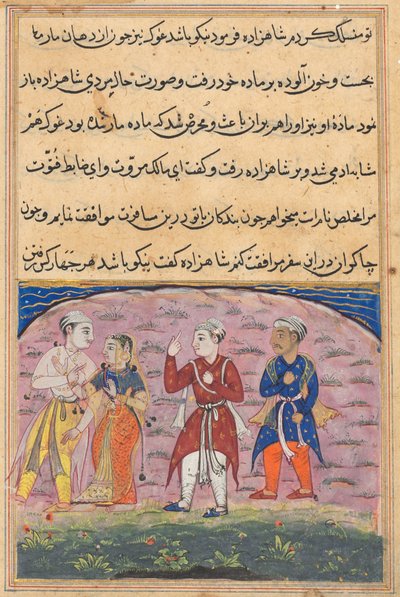 تو منسلک کردم شاهزاده فرمود نیکو باشد غوک نیز چون از دهان مار رها
بجست و خون آلوده بر ماده خود رفت و صورت حال مردی شاهزاده باز
نمود مادهٔ او نیز او را هم بران باعث و محرض شد که ماده مار شده بود غوک هم
شابه ادمی شد و بر شاهزاده رفت و کفت ای مالک مروت و ای ضابط فتوت
مرا مخلص نام است میخواهم چون بندکان با تو درین مسافرت موافقت نمایم و چون
چاکران در این سفر مرافقت کنم شاهزاده کفت نیکو باشد هر چهار کس رفتن